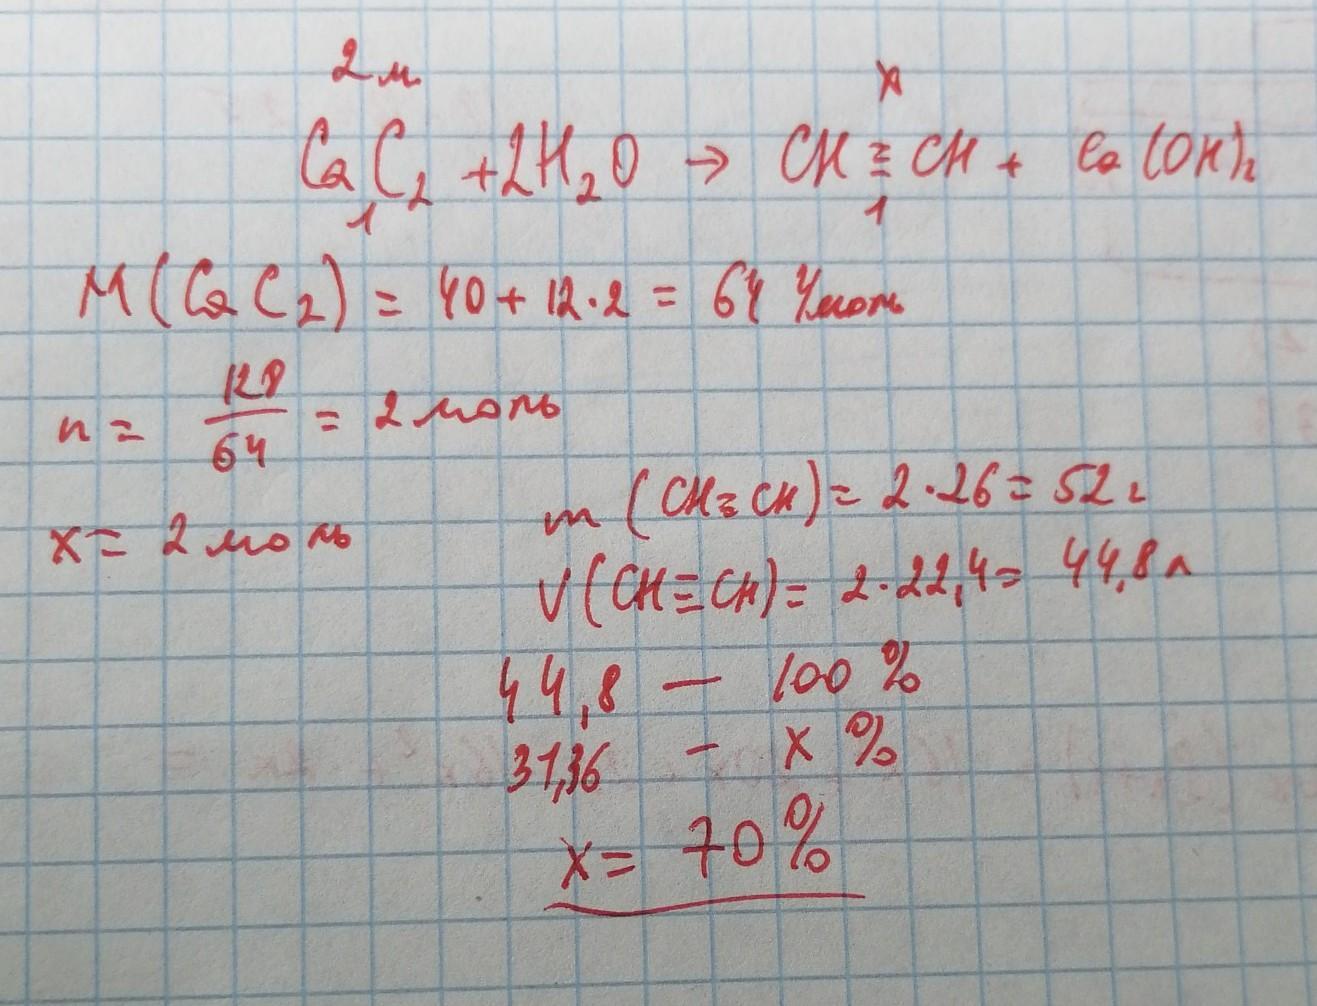 2 м x
CaC₂ + 2H₂O → CH≡CH + Ca(OH)₂
1 1
M(CaC₂) = 40 + 12·2 = 64 г/моль
n = 128/64 = 2 моль
x = 2 моль
m(CH≡CH) = 2·26 = 52 г
V(CH≡CH) = 2·22,4 = 44,8 л
44,8 — 100 %
31,36 – x %
x = 70 %